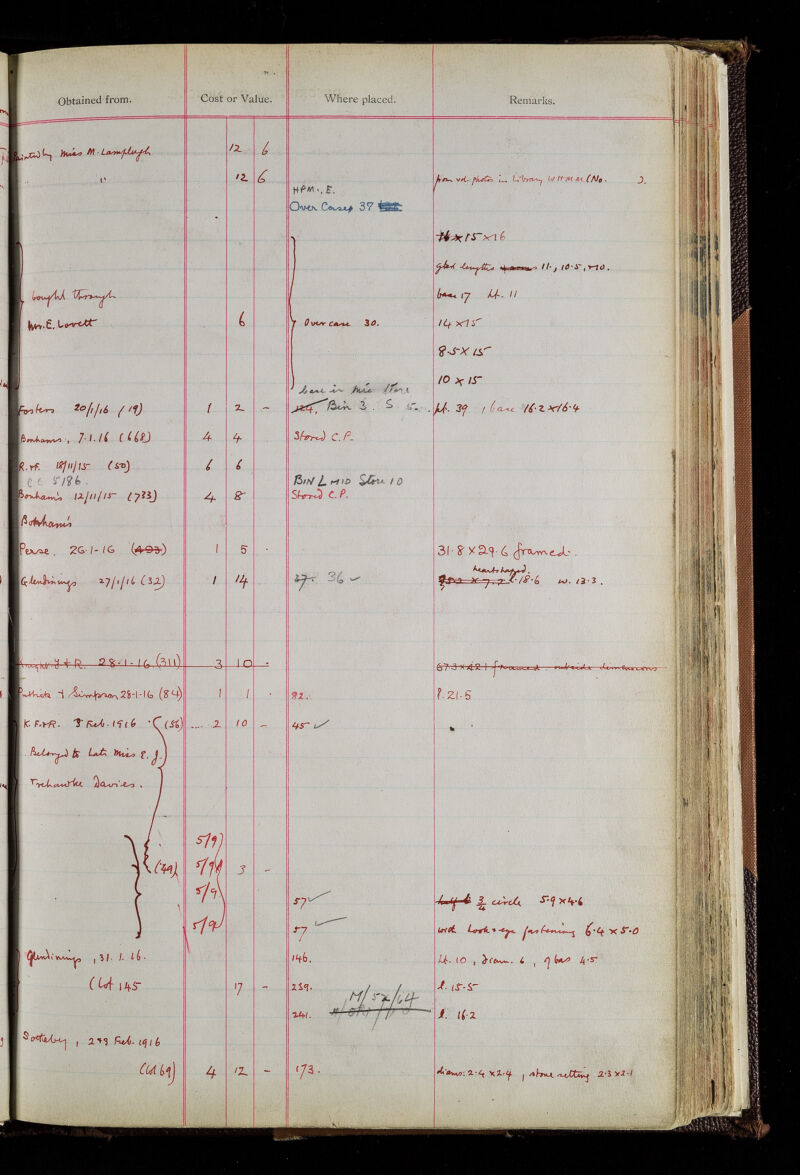 Obtained from. Cost or Value. Where placed. Remarks.
Painted by Miss M. Lamplugh 12 6
" 12 6 from vol. photos in Library (No. ).
HPM., E.
Over Cases 37
15 x 16
glad lengths 11., 10.5, 10.
bought through base 17 ht. 11
Mrs. E. Lovett 6 Over case 30. 14 x 15
8.5 x 15
10 x 15
base in Misc Store
Fosters 20/1/16 (19) 1 2 - 124, Bin 3. S ht. 39 , base 16.2 x 16.4
Bonhams, 7.1.16 (668) 4 4 Stored C.P.
R. & F. 18/11/15 (50) 6 6
CC 5186. BIN L MID Store 10
Bonham's 12/11/15 (733) 4 8 Stored C.P.
Bonham's
Pearse. 26-1-16 (493) 1 5 - 31.8 x 29.6 framed.
heart shaped.
Glendinings 27/1/16 (32) 1 14 37. 36 ✓ 9.2 x 7.2 l. 18.6 w. 13.3.
28-1-16 (311) 3 10 - 67.3 x 42.1 framed. outside dimensions
Puttick & Simpson 28-1-16 (84) 1 1 - 82. l. 21.5
K. F. & R. 3 Feb. 1916 (56) 2 10 - 45 ✓
Belonged to late Miss E. J.
Trehawke Davies.
5/9
(49) 5/9 3 -
5/9 57 ✓ half 3/4 circle 5.9 x 4.6
5/9 57 ✓ with hook & eye fastening 6.4 x 5.0
Glendinings, 31. 1. 16. 146. ht. 10, diam. 6, of base 4.5
(Lot 145 17 - 239. l. 15.5
M/52/64
241. l. 16.2
Sotheby, 2 & 3 Feb. 1916
(Lot 69) 4 12 - 173. diams: 2.4 x 2.4, stone setting 2.3 x 2.1